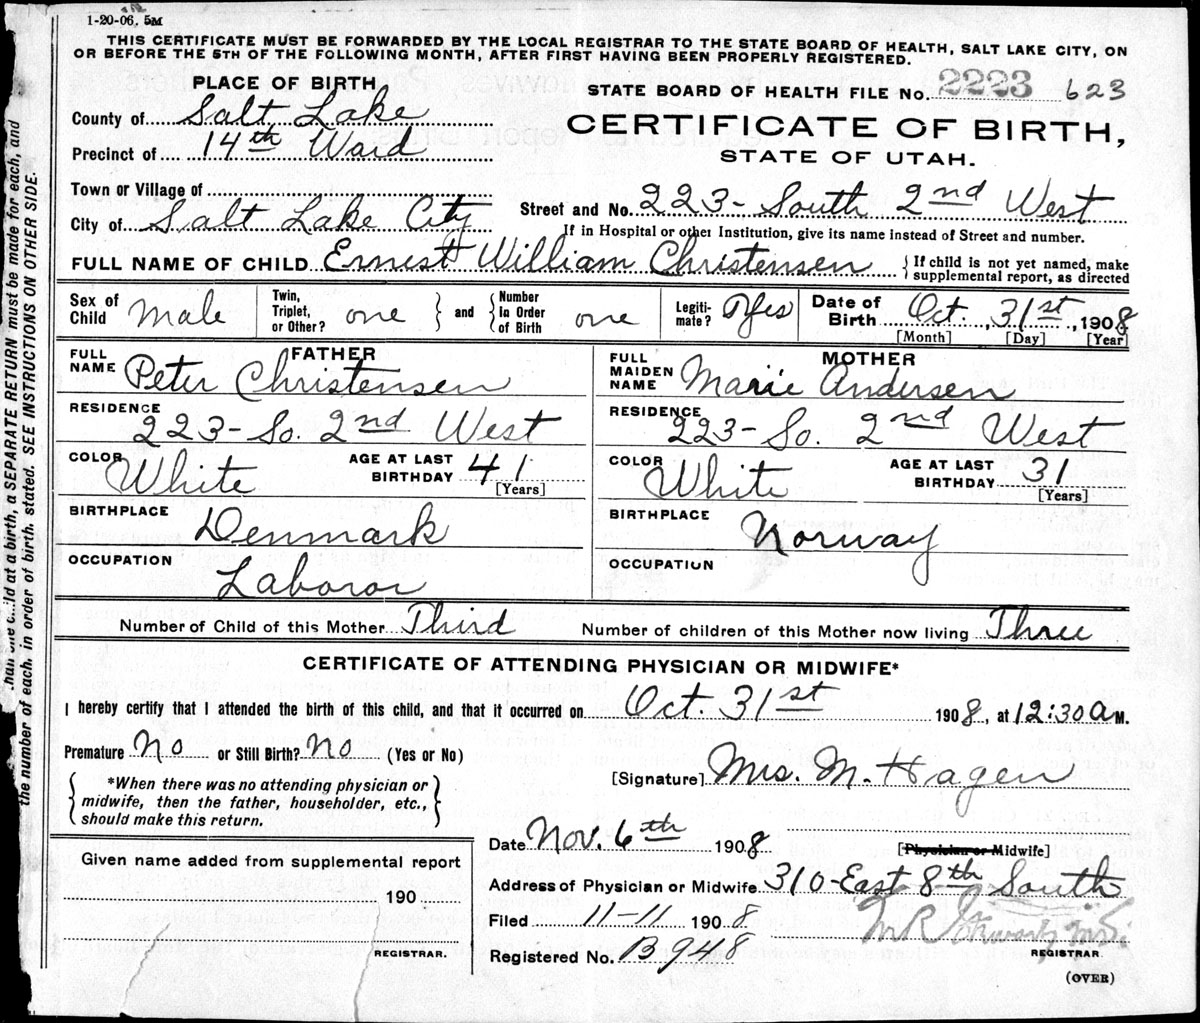 1-20-06. 5M
THIS CERTIFICATE MUST BE FORWARDED BY THE LOCAL REGISTRAR TO THE STATE BOARD OF HEALTH, SALT LAKE CITY, ON
OR BEFORE THE 5TH OF THE FOLLOWING MONTH, AFTER FIRST HAVING BEEN PROPERLY REGISTERED.
PLACE OF BIRTH
STATE BOARD OF HEALTH FILE No. 2223 623
County of Salt Lake
CERTIFICATE OF BIRTH,
Precinct of 14th Ward
STATE OF UTAH.
Town or Village of
Street and No. 223- South 2nd West
City of Salt Lake City
If in Hospital or other Institution, give its name instead of Street and number.
FULL NAME OF CHILD Ernest William Christensen { If child is not yet named, make
supplemental report, as directed
Sex of Child Male
Twin, Triplet, or Other? one } and { Number In Order of Birth one
Legiti-mate? Yes
Date of Birth Oct. , 31st , 1908
[Month] [Day] [Year]
FATHER
FULL NAME Peter Christensen
RESIDENCE 223- So. 2nd West
COLOR White AGE AT LAST BIRTHDAY 41
[Years]
BIRTHPLACE Denmark
OCCUPATION Laboror
MOTHER
FULL MAIDEN NAME Marie Andersen
RESIDENCE 223- So. 2nd West
COLOR White AGE AT LAST BIRTHDAY 31
[Years]
BIRTHPLACE Norway
OCCUPATION
Number of Child of this Mother Third Number of children of this Mother now living Three
CERTIFICATE OF ATTENDING PHYSICIAN OR MIDWIFE*
I hereby certify that I attended the birth of this child, and that it occurred on Oct. 31st 1908, at 12:30 A M.
Premature No or Still Birth? No (Yes or No)
[Signature] Mrs. M. Hagen
{ *When there was no attending physician or
midwife, then the father, householder, etc.,
should make this return. }
Date Nov. 6th 1908 [Physician or Midwife]
Given name added from supplemental report
190
REGISTRAR.
Address of Physician or Midwife 310-East 8th South
Filed 11-11 1908
Registered No. B948
REGISTRAR.
(OVER)
than one child at a birth, a SEPARATE RETURN must be made for each, and
the number of each, in order of birth, stated. SEE INSTRUCTIONS ON OTHER SIDE.